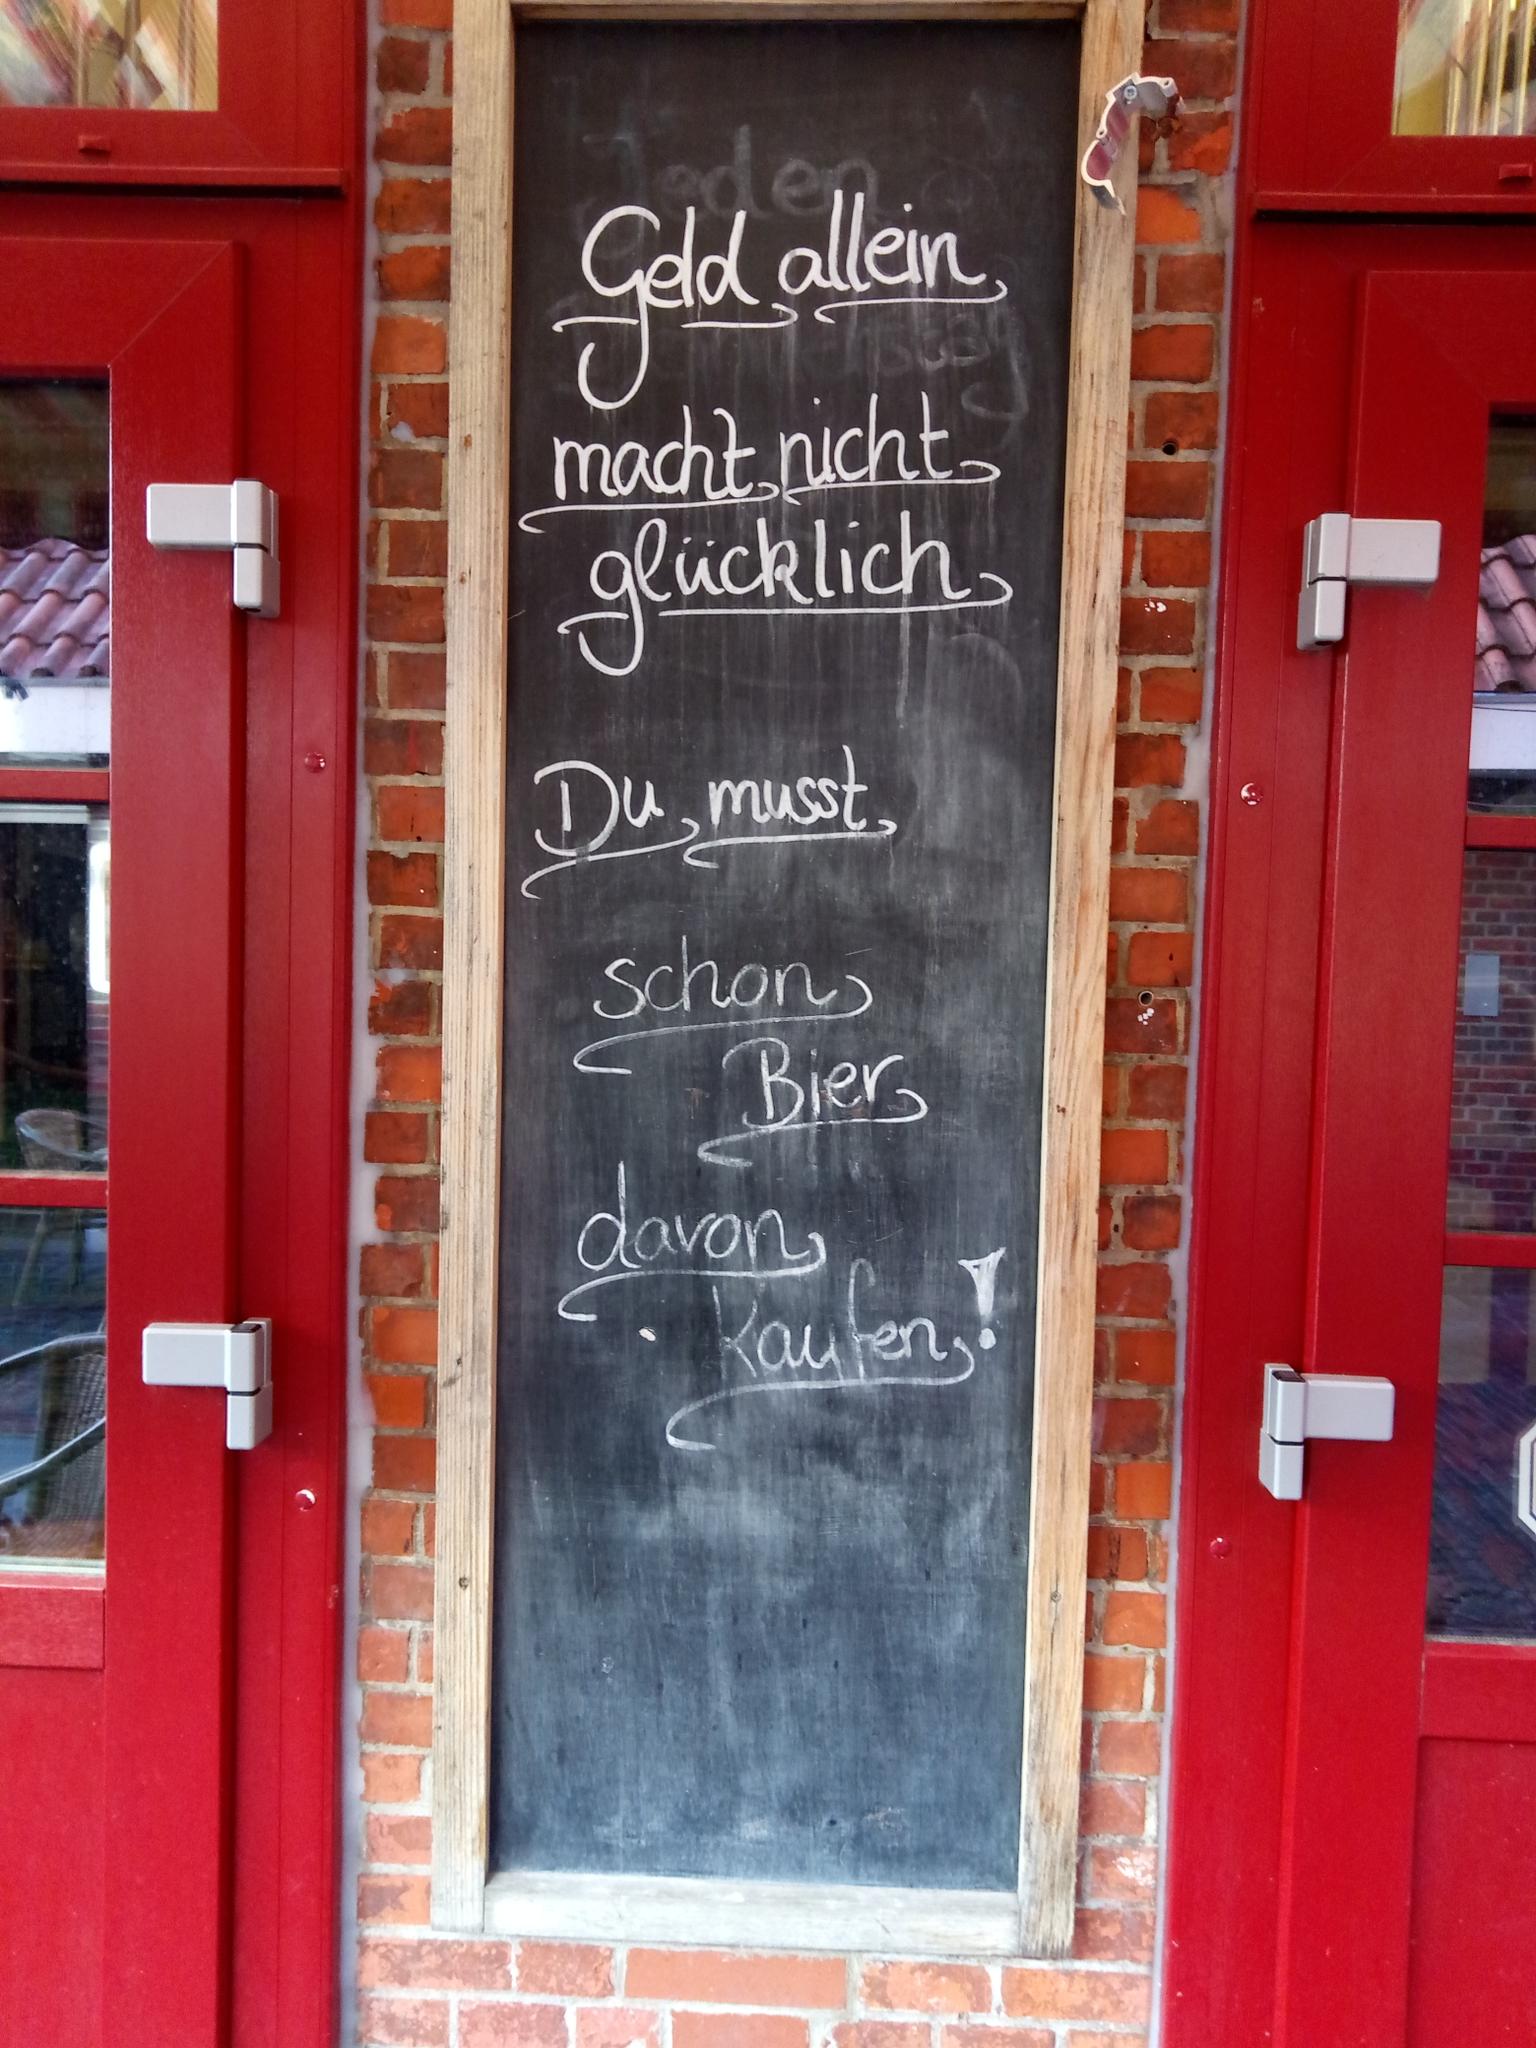 Jeden
Geld allein
macht nicht
glücklich
Du musst
schon
Bier
davon
kaufen!